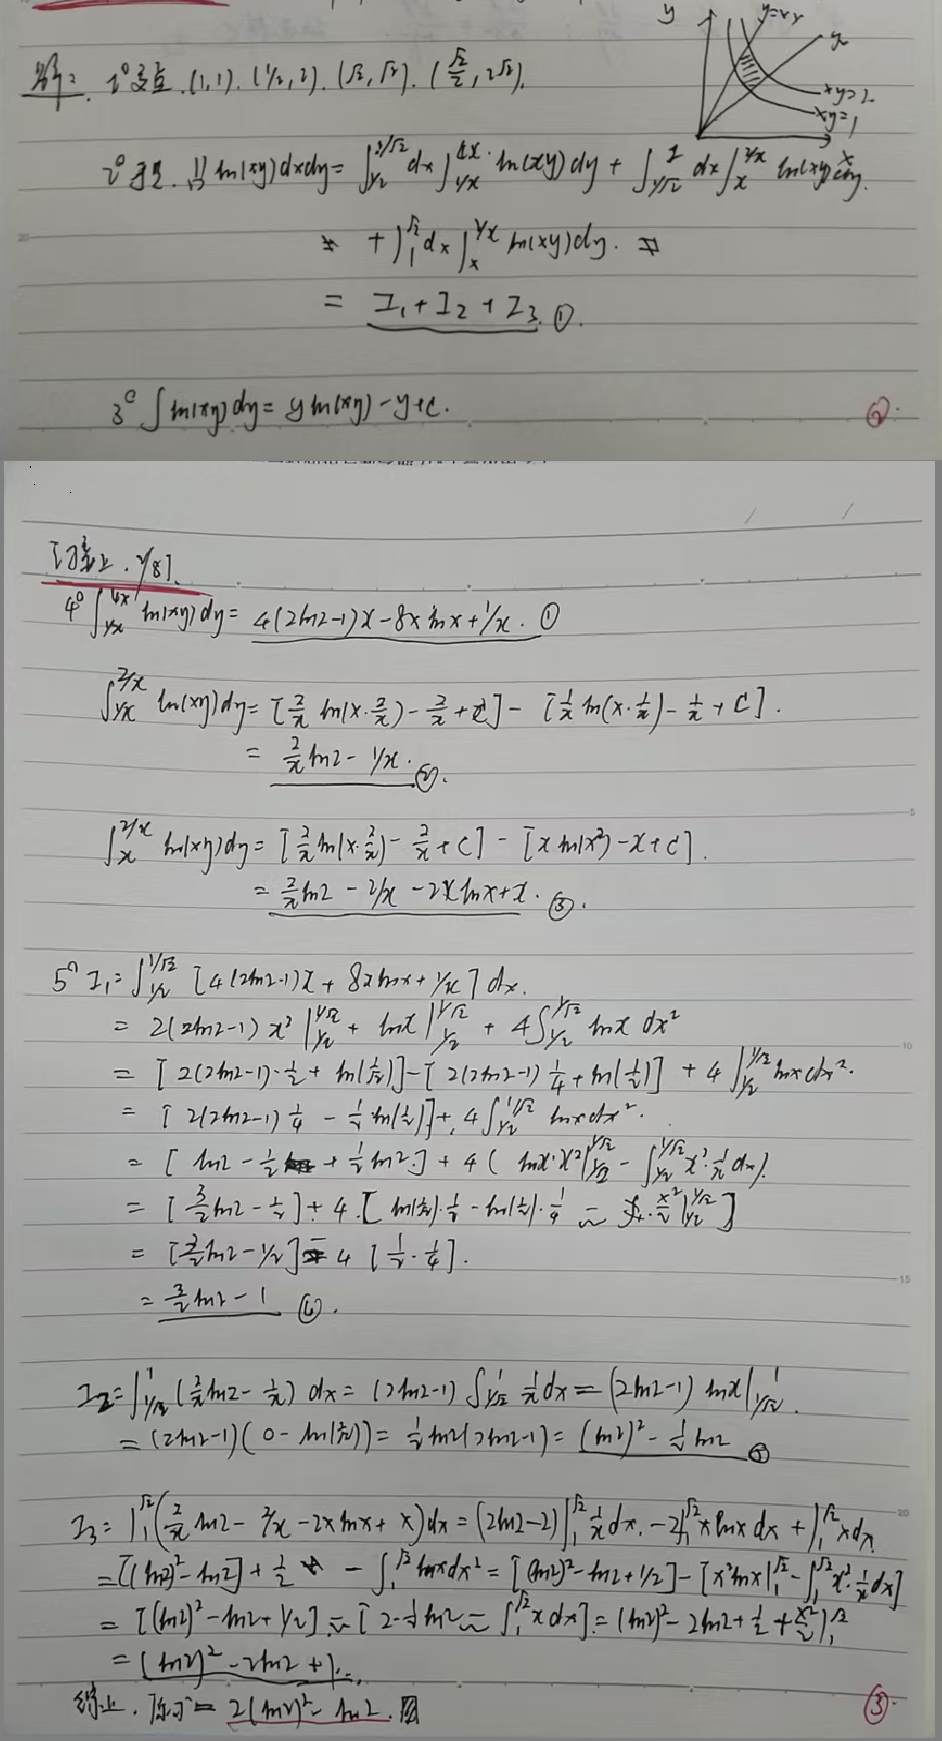 解: 1° 交点. (1,1). (1/2, 2). (√2, √2). (√2/2, 2√2).
y
y=4x
x
xy=2
xy=1
x
2° 于是. ∬_D ln(xy)dxdy = ∫_{1/2}^{1/√2} dx ∫_{1/x}^{4x} ln(xy)dy + ∫_{1/√2}^{1} dx ∫_{x}^{2/x} ln(xy)dy.
+ ∫_1^{√2} dx ∫_x^{2/x} ln(xy)dy.
= I₁ + I₂ + I₃. ①.
3° ∫ ln(xy)dy = y ln(xy) - y + C.
②.
[接上. 2/8].
4° ∫_{1/x}^{4x} ln(xy)dy = 4(2ln2-1)x - 8x lnx + 1/x. ①
∫_{1/x}^{2/x} ln(xy)dy = [2/x ln(x·2/x) - 2/x + C] - [1/x ln(x·1/x) - 1/x + C].
= 2/x ln2 - 1/x. ②.
∫_x^{2/x} ln(xy)dy = [2/x ln(x·2/x) - 2/x + C] - [x ln(x²) - x + C].
= 2/x ln2 - 2/x - 2x lnx + x. ③.
5° I₁ = ∫_{1/2}^{1/√2} [4(2ln2-1)x + 8x lnx + 1/x] dx.
= 2(2ln2-1) x² |_{1/2}^{1/√2} + lnx |_{1/2}^{1/√2} + 4∫_{1/2}^{1/√2} lnx dx²
= [2(2ln2-1)·1/2 + ln(1/√2)] - [2(2ln2-1) 1/4 + ln(1/2)] + 4∫_{1/2}^{1/√2} lnx dx².
= [2(2ln2-1) 1/4 - 1/2 ln(1/2)] + 4∫_{1/2}^{1/√2} lnx dx².
= [ln2 - 1/2 + 1/2 ln2.] + 4( lnx·x² |_{1/2}^{1/√2} - ∫_{1/2}^{1/√2} x²·1/x dx).
= [3/2 ln2 - 1/2] + 4.[ln(1/√2)·1/2 - ln(1/2)·1/4 - x²/2 |_{1/2}^{1/√2}]
= [3/2 ln2 - 1/2] - 4 [1/2·1/4].
= 3/2 ln2 - 1 ④.
I₂ = ∫_{1/√2}^1 (2/x ln2 - 1/x) dx = (2ln2-1) ∫_{1/√2}^1 1/x dx = (2ln2-1) lnx |_{1/√2}^1.
= (2ln2-1)(0 - ln(1/√2)) = 1/2 ln2(2ln2-1) = (ln2)² - 1/2 ln2 ⑤
I₃ = ∫_1^{√2} (2/x ln2 - 2/x - 2x lnx + x)dx = (2ln2-2)∫_1^{√2} 1/x dx. - 2∫_1^{√2} x lnx dx + ∫_1^{√2} x dx.
= [(ln2)² - ln2] + 1/2 - ∫_1^{√2} lnx dx² = [(ln2)² - ln2 + 1/2] - [x² lnx |_1^{√2} - ∫_1^{√2} x²·1/x dx]
= [(ln2)² - ln2 + 1/2] - [2·1/2 ln2 - ∫_1^{√2} x dx]. = (ln2)² - 2ln2 + 1/2 + x²/2 |_1^{√2}
= (ln2)² - 2ln2 + 1.
综上. 原式 = 2(ln2)² - ln2.
③